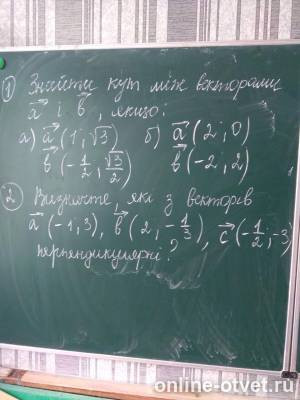 ① Знайдіть кут між векторами
a⃗ і b⃗, якщо:
а) a⃗ (1; √3) б) a⃗ (2; 0)
b⃗ (-1/2; √3/2) b⃗ (-2; 2)
② Визначте, які з векторів
a⃗ (-1; 3), b⃗ (2; -1/3), c⃗ (-1/2; -3)
перпендикулярні?
online-otvet.ru